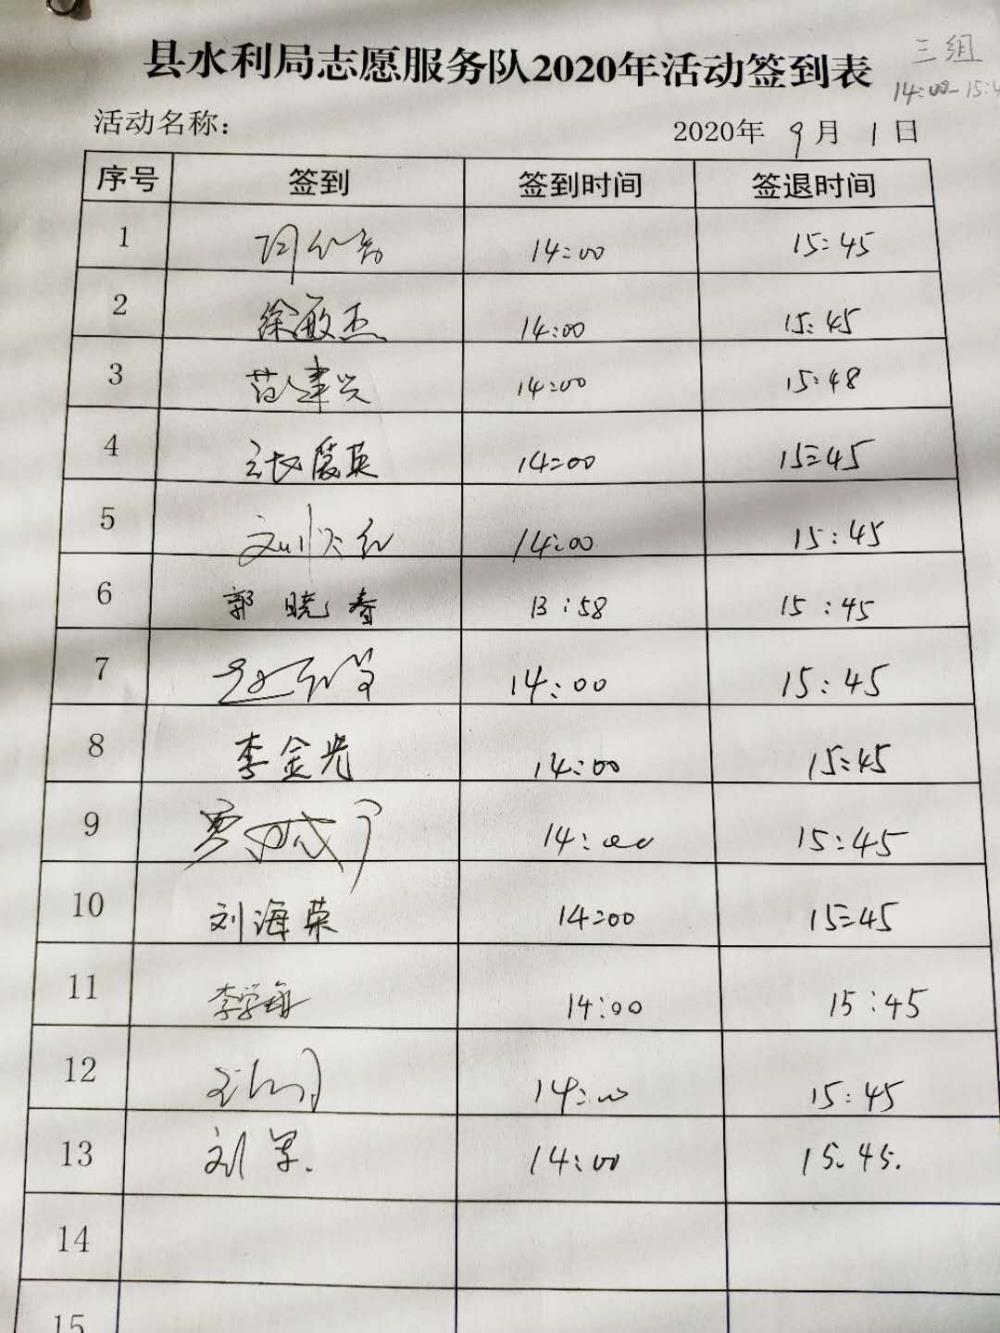 县水利局志愿服务队2020年活动签到表
三组
14:00-15:4
活动名称：
2020年 9月 1日
序号 签到 签到时间 签退时间
1 14:00 15:45
2 徐敏杰 14:00 15:45
3 范建兴 14:00 15:48
4 14:00 15:45
5 14:00 15:45
6 郭晓春 13:58 15:45
7 14:00 15:45
8 李金光 14:00 15:45
9 14:00 15:45
10 刘海荣 14:00 15:45
11 14:00 15:45
12 14:00 15:45
13 刘军. 14:00 15:45.
14
15